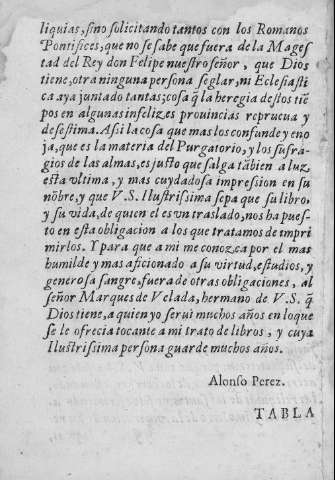 liquias, sino solicitando tantos con los Romanos
Pontifices, que no se sabe que fuera de la Mages
tad del Rey don Felipe nuestro señor, que Dios
tiene, otra ninguna persona seglar, ni Eclesiast
ica aya juntado tantas; cosa q̃ la heregia destos tiẽ
pos en algunas infelizes prouincias reprueua y
desestima. Assi la cosa que mas los confunde y eno
ja, que es la materia del Purgatorio, y los sufra
gios de las almas, es justo que salga tãbien a luz
esta vltima, y mas cuydadosa impression en su
nõbre, y que V.S. Ilustrissima sepa que su libro,
y su vida, de quien el es vn traslado, nos ha pues-
to en esta obligacion a los que tratamos de impri
mirlos. Y para que a mi me conozca por el mas
humilde y mas aficionado a su virtud, estudios, y
generosa sangre, fuera de otras obligaciones, al
señor Marques de Velada, hermano de V.S. q̃
Dios tiene, a quien yo serui muchos años en loque
se le ofrecia tocante a mi trato de libros, y cuya
Ilustrissima persona guarde muchos años.
Alonso Perez.
TABLA